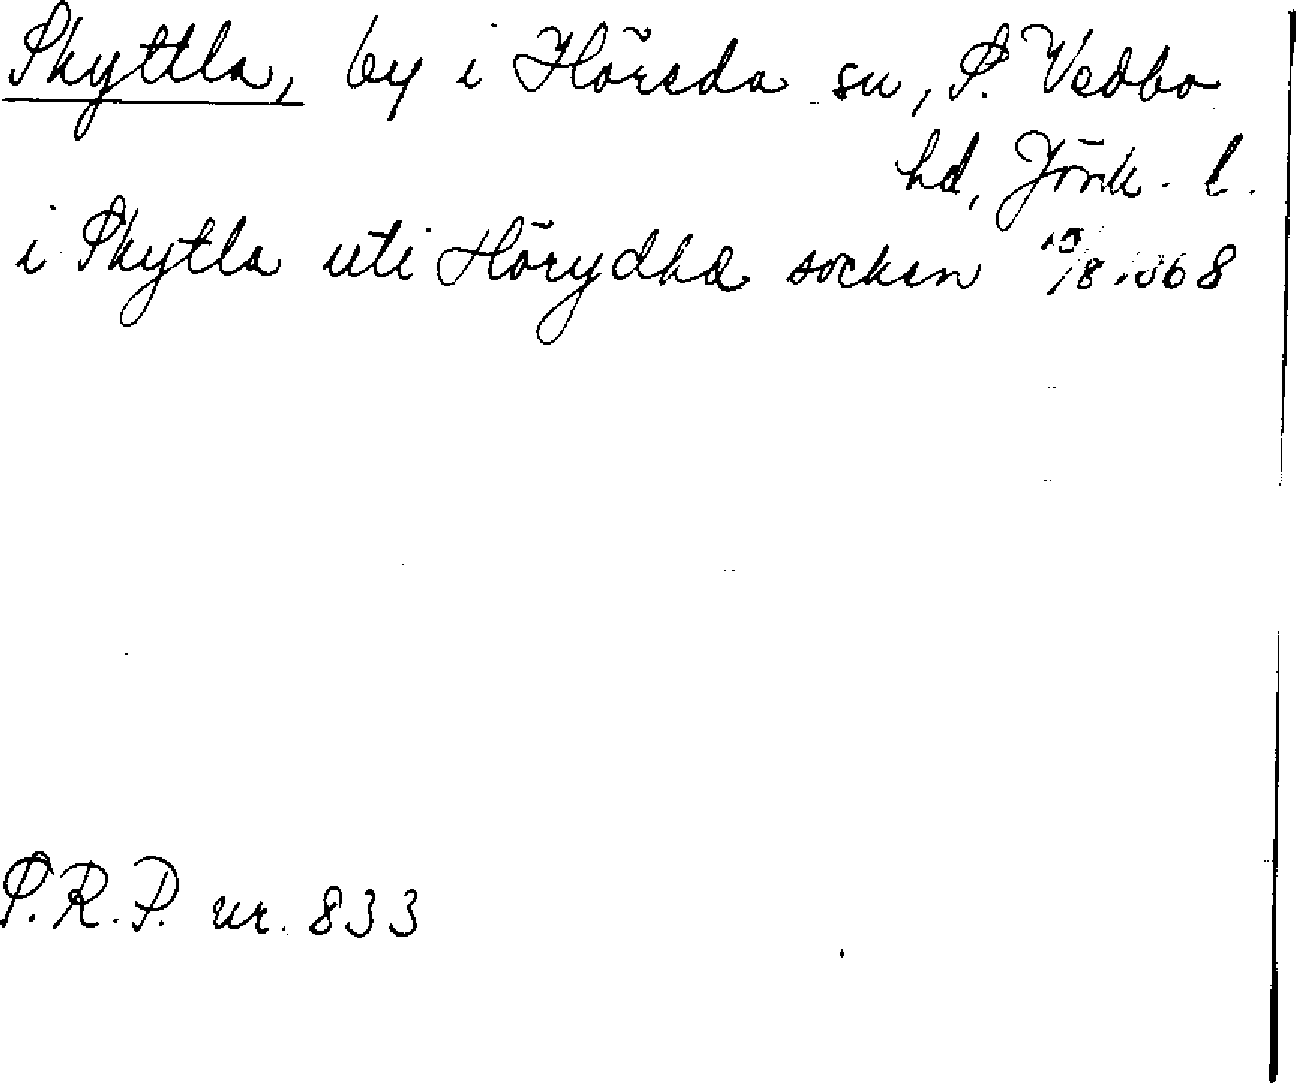 Skyttla, by i Höreda sn, S. Vedbo
hd, Jönk. l.
i Skytla uti Hörydha socken 15/8 1368
S.R.P. nr. 833